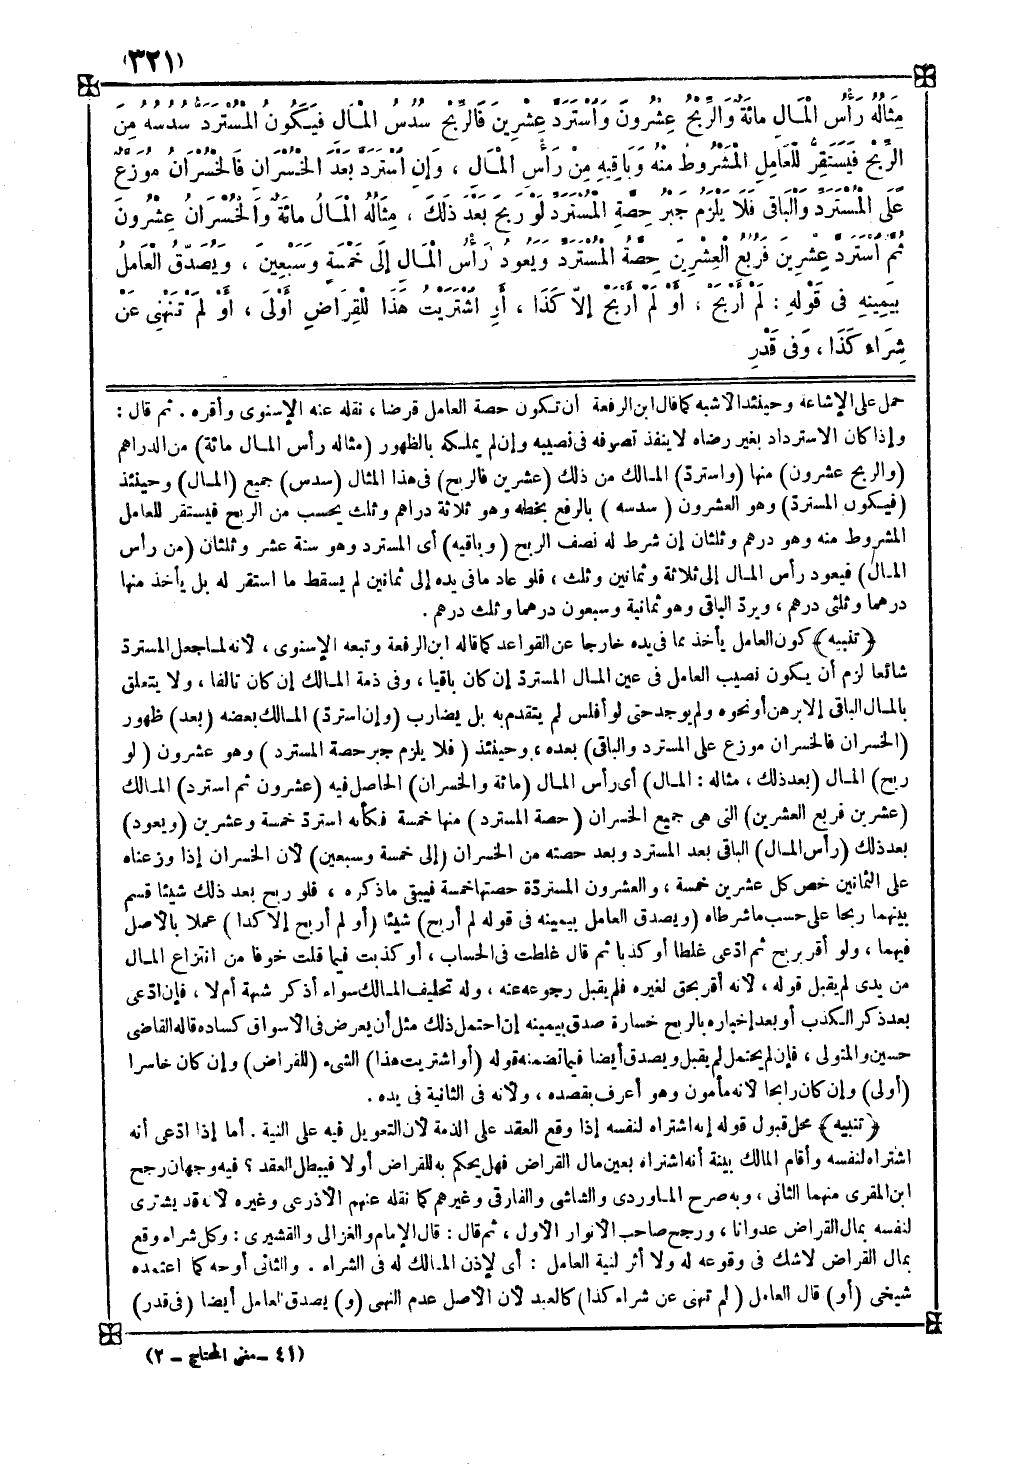 (٣٢١)
مِثَالُهُ رَأْسُ الْمَالِ مِائَةٌ وَالرِّبْحُ عِشْرُونَ وَاسْتَرَدَّ عِشْرِينَ فَالرِّبْحُ سُدُسُ الْمَالِ فَيَكُونُ الْمُسْتَرَدُّ سُدُسُهُ مِنَ
الرِّبْحِ فَيَسْتَقِرُّ لِلْعَامِلِ الْمَشْرُوطُ مِنْهُ وَبَاقِيهِ مِنْ رَأْسِ الْمَالِ ، وَإِنِ اسْتَرَدَّ بَعْدَ الْخُسْرَانِ فَالْخُسْرَانُ مُوَزَّعٌ
عَلَى الْمُسْتَرَدِّ وَالْبَاقِى فَلَا يَلْزَمُ جَبْرُ حِصَّةِ الْمُسْتَرَدِّ لَوْ رَبِحَ بَعْدَ ذَلِكَ ، مِثَالُهُ الْمَالُ مِائَةٌ وَالْخُسْرَانُ عِشْرُونَ
ثُمَّ اسْتَرَدَّ عِشْرِينَ فَرُبُعُ الْعِشْرِينَ حِصَّةُ الْمُسْتَرَدِّ وَيَعُودُ رَأْسُ الْمَالِ إِلَى خَمْسَةٍ وَسَبْعِينَ ، وَيُصَدَّقُ الْعَامِلُ
بِيَمِينِهِ فِى قَوْلِهِ : لَمْ أَرْبَحْ ، أَوْ لَمْ أَرْبَحْ إِلَّا كَذَا ، أَوِ اشْتَرَيْتُ هَذَا لِلْقِرَاضِ أَوْلَى ، أَوْ لَمْ تَنْهَنِى عَنْ
شِرَاءِ كَذَا ، وَفِى قَدْرِ
حمل على الإشاعة وحينئذ الأشبه كما قال ابن الرفعة أن تكون حصة العامل قرضا ، نقله عنه الإسنوى وأقره . ثم قال :
وإذا كان الاسترداد بغير رضاه لا ينفذ تصرفه فى نصيبه وإن لم يملكه بالظهور (مثاله رأس المال مائة) من الدراهم
(والربح عشرون) منها (واسترد) المالك من ذلك (عشرين فالربح) فى هذا المثال (سدس) جميع (المال) وحينئذ
(فيكون المسترد) وهو العشرون ( سدسه ) بالرفع بخطه وهو ثلاثة دراهم وثلث يحسب من الربح فيستقر للعامل
المشروط منه وهو درهم وثلثان إن شرط له نصف الربح ( وباقيه) أى المسترد وهو ستة عشر وثلثان (من رأس
المال) فيعود رأس المال إلى ثلاثة وثمانين وثلث ، فلو عاد ما فى يده إلى ثمانين لم يسقط ما استقر له بل يأخذ منها
درهما وثلثى درهم ، ويرد الباقى وهو ثمانية وسبعون درهما وثلث درهم .
﴿تنبيه﴾ كون العامل يأخذ مما فى يده خارجا عن القواعد كما قاله ابن الرفعة وتبعه الإسنوى ، لأنه لما جعل المسترد
شائعا لزم أن يكون نصيب العامل فى عين المال المسترد إن كان باقيا ، وفى ذمة المالك إن كان تالفا ، ولا يتعلق
بالمال الباقى إلا برهن أو نحوه ولم يوجد حتى لو أفلس لم يتقدم به بل يضارب (وإن استرد) المالك بعضه (بعد) ظهور
(الخسران فالخسران موزع على المسترد والباقى) بعده ، وحينئذ ( فلا يلزم جبر حصة المسترد ) وهو عشرون ( لو
ربح) المال (بعد ذلك ، مثاله : المال) أى رأس المال (مائة والخسران) الحاصل فيه (عشرون ثم استرد) المالك
(عشرين فربع العشرين) التى هى جميع الخسران (حصة المسترد ) منها خمسة فكأنه استرد خمسة وعشرين (ويعود)
بعد ذلك (رأس المال) الباقى بعد المسترد وبعد حصته من الخسران (إلى خمسة وسبعين) لأن الخسران إذا وزعناه
على الثمانين خص كل عشرين خمسة ، والعشرون المستردة حصتها خمسة فيبقى ما ذكره ، فلو ربح بعد ذلك شيئا قسم
بينهما ربحا على حسب ما شرطاه (ويصدق العامل بيمينه فى قوله لم أربح) شيئا (أو لم أربح إلا كذا ) عملا بالأصل
فيهما ، ولو أقر بربح ثم ادّعى غلطا أو كذبا ثم قال غلطت فى الحساب ، أو كذبت فيما قلت خوفا من انتزاع المال
من يدى لم يقبل قوله ، لأنه أقر بحق لغيره فلم يقبل رجوعه عنه ، وله تحليف المالك سواء أذكر شبهة أم لا ، فإن ادّعى
بعد ذكر الكذب أو بعد إخباره بالربح خسارة صدق بيمينه إن احتمل ذلك مثل أن يعرض فى الأسواق كساد قاله القاضى
حسين والمتولى ، فإن لم يحتمل لم يقبل ويصدق أيضا فيما تضمنه قوله (أو اشتريت هذا) الشىء (للقراض) وإن كان خاسرا
(أولى) وإن كان رابحا لأنه مأمون وهو أعرف بقصده ، ولأنه فى الثانية فى يده .
﴿تنبيه﴾ محل قبول قوله إنه اشتراه لنفسه إذا وقع العقد على الذمة لأن التعويل فيه على النية . أما إذا ادّعى أنه
اشتراه لنفسه وأقام المالك بينة أنه اشتراه بعين مال القراض فهل يحكم به للقراض أو لا فيبطل العقد ؟ فيه وجهان رجح
ابن المقرى منهما الثانى ، وبه صرح الماوردى والشاشى والفارقى وغيرهم كما نقله عنهم الأذرعى وغيره لأنه قد يشترى
لنفسه بمال القراض عدوانا ، ورجح صاحب الأنوار الأول ، ثم قال : قال الإمام والغزالى والقشيرى : وكل شراء وقع
بمال القراض لا شك فى وقوعه له ولا أثر لنية العامل : أى لإذن المالك له فى الشراء . والثانى أوجه كما اعتمده
شيخى (أو) قال العامل ( لم تنهنى عن شراء كذا) كالعبد لأن الأصل عدم النهى (و) يصدق العامل أيضا (فى قدر)
(٤١ - مغنى المحتاج - ٢)